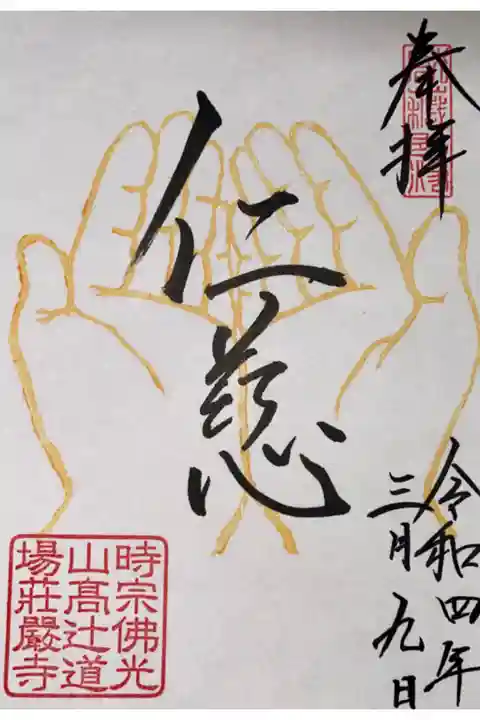 奉拝
令和四年
三月九日
仁慈
時宗佛光
山髙辻道
場荘嚴寺